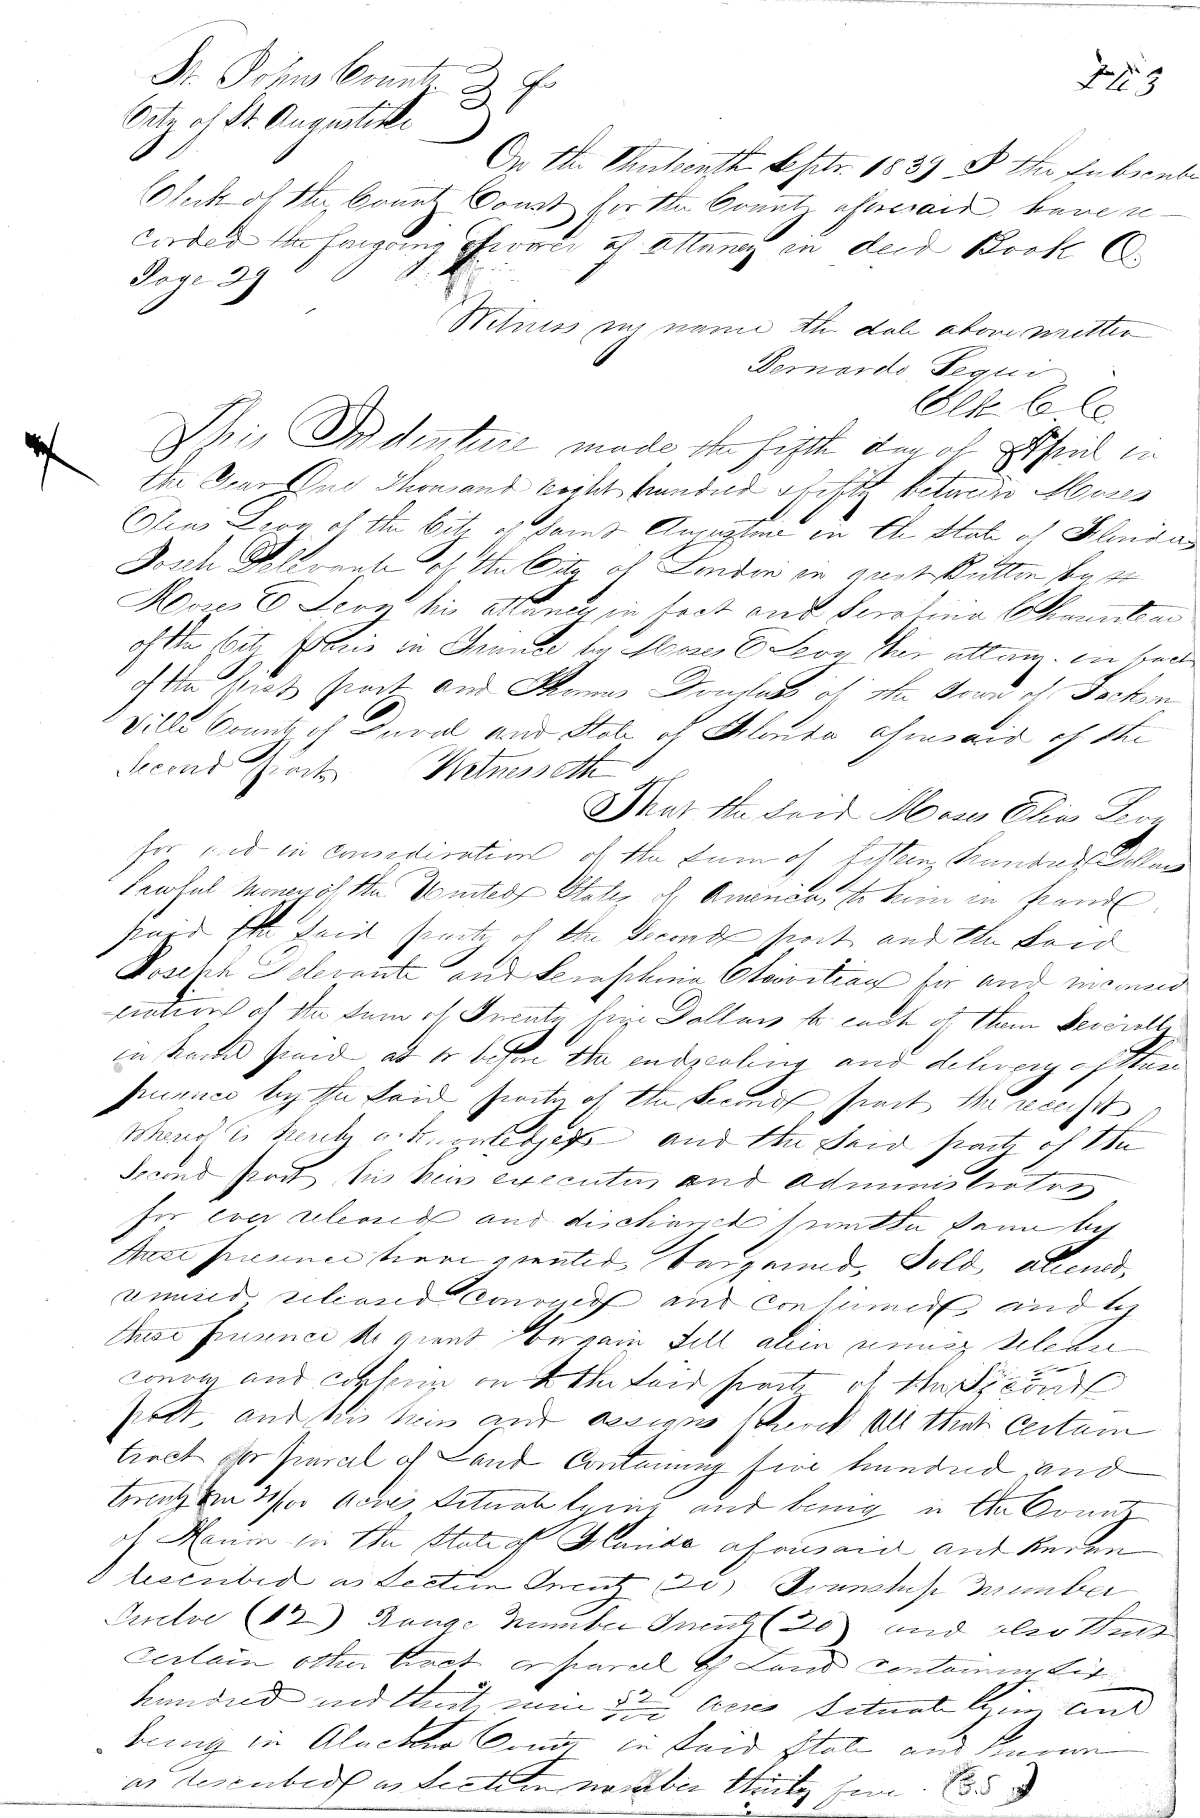 St. Johns County
City of St. Augustine
On the Thirteenth Septr. 1839 I the subscribe
Clerk of the County Court for the County aforesaid, have re-
corded the forgoing power of attorney in deed Book O.
Page 29
Witness my name the date above written
Bernardo Segui
Clk C. C.
This Indenture made the fifth day of April in
the Year One Thousand eight hundred & fifty between Moses
Elias Levy of the City of Saint Augustine in the State of Florida
Joseh Delevante of the City of London in great Britton by
Moses E Levy his attorney in fact and Serafina Chauviteau
of the City Paris in France by Moses E Levy her attorny. in fact
of the first part and Thomas Douglass of the Town of Jackson
Ville County of Duval and State of Florida aforesaid of the
Second part Witnesseth
That the said Moses Elias Levy
for and in consediration of the sum of fifteen hundred Dollars
lawful money of the United States of America, to him in hand
paid the said party of the second part and the said
Joseph Delevante and Seraphina for and in consid
eration of the sum of Twenty five Dollars to each of them Severally
in hand paid at or before the endsealing and delivery of these
presence by the said party of the second part the receipt
whereof is hereby acknowledged and the said party of the
Second part, his heirs executors and administrators
for ever released and discharged from the same by
these presence have granted, bargained, Sold, aliened,
remised released conveyed and confirmed, and by
these presence do grant bargain sell alien remise release
convey and confirm onto the said party of the Second
part, and his heirs and assigns forever all that certain
tract or parcel of Land containing five hundred and
twenty /100 acres situate lying and being in the County
of Marion in the State of Florida aforesaid and known
described as Section Twenty (20) Township number
Twelve (12) Range number Twenty (20) and also that
certain other tract or parcel of Land containing Six
hundred and thirty nine 52/100 acres situate lying and
being in Alachua County in said State and known
as described as section number thirty five. (35)